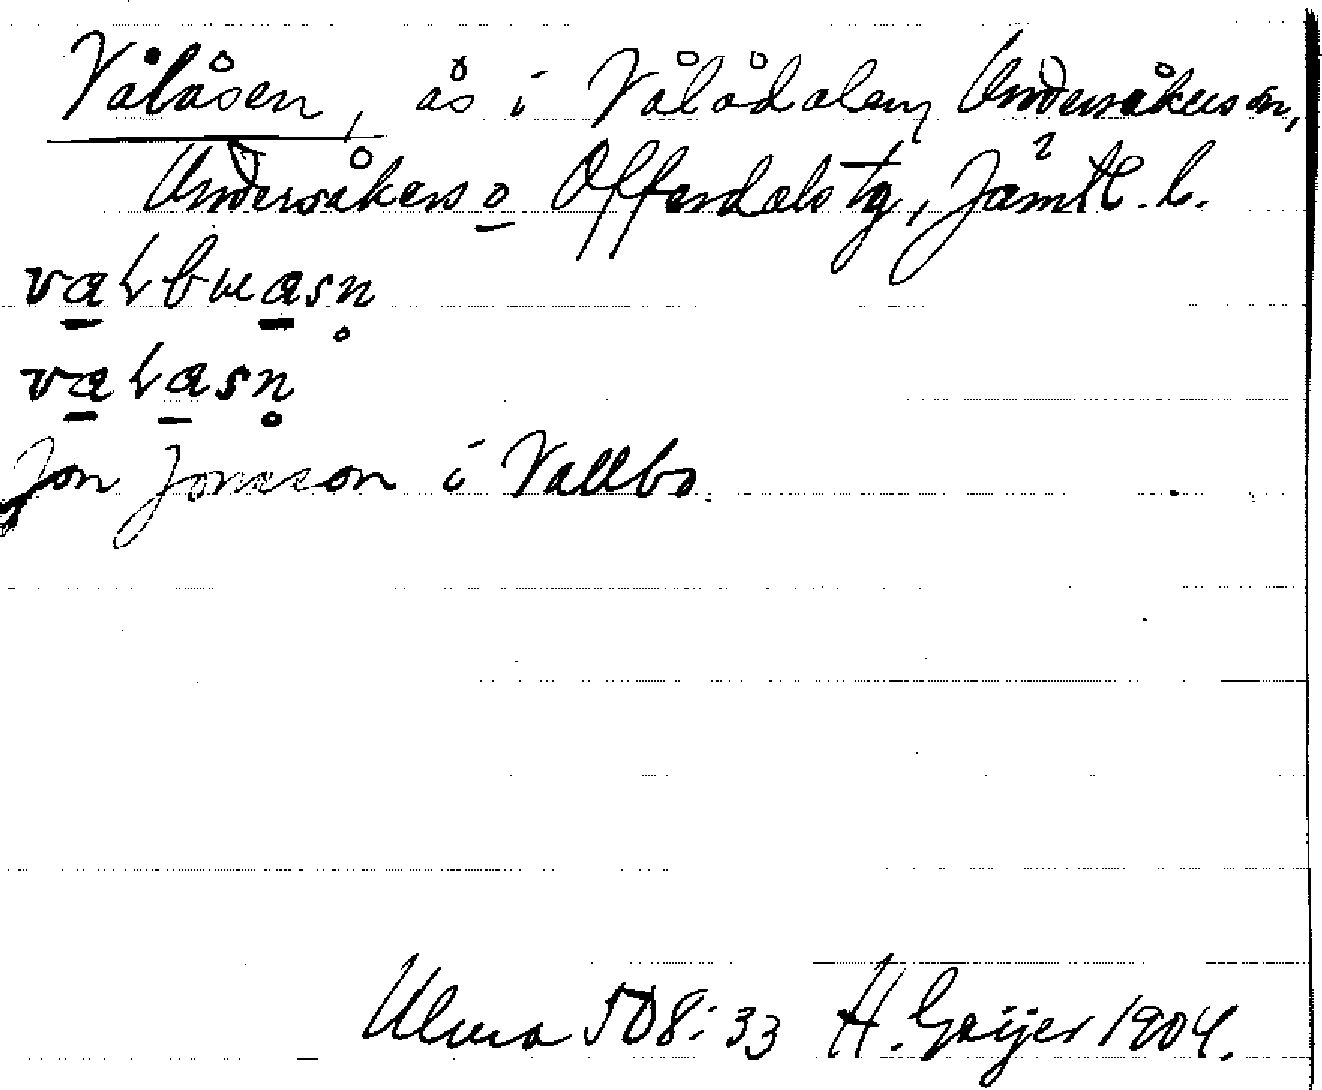 Vålåsen, ås i Vålådalen, Undersåkers sn,
Undersåkers o Offerdals tg, Jämtl. l.
Jon Jonsson i Vallbo.
Ulma 508:33 H. Geijer 1904.